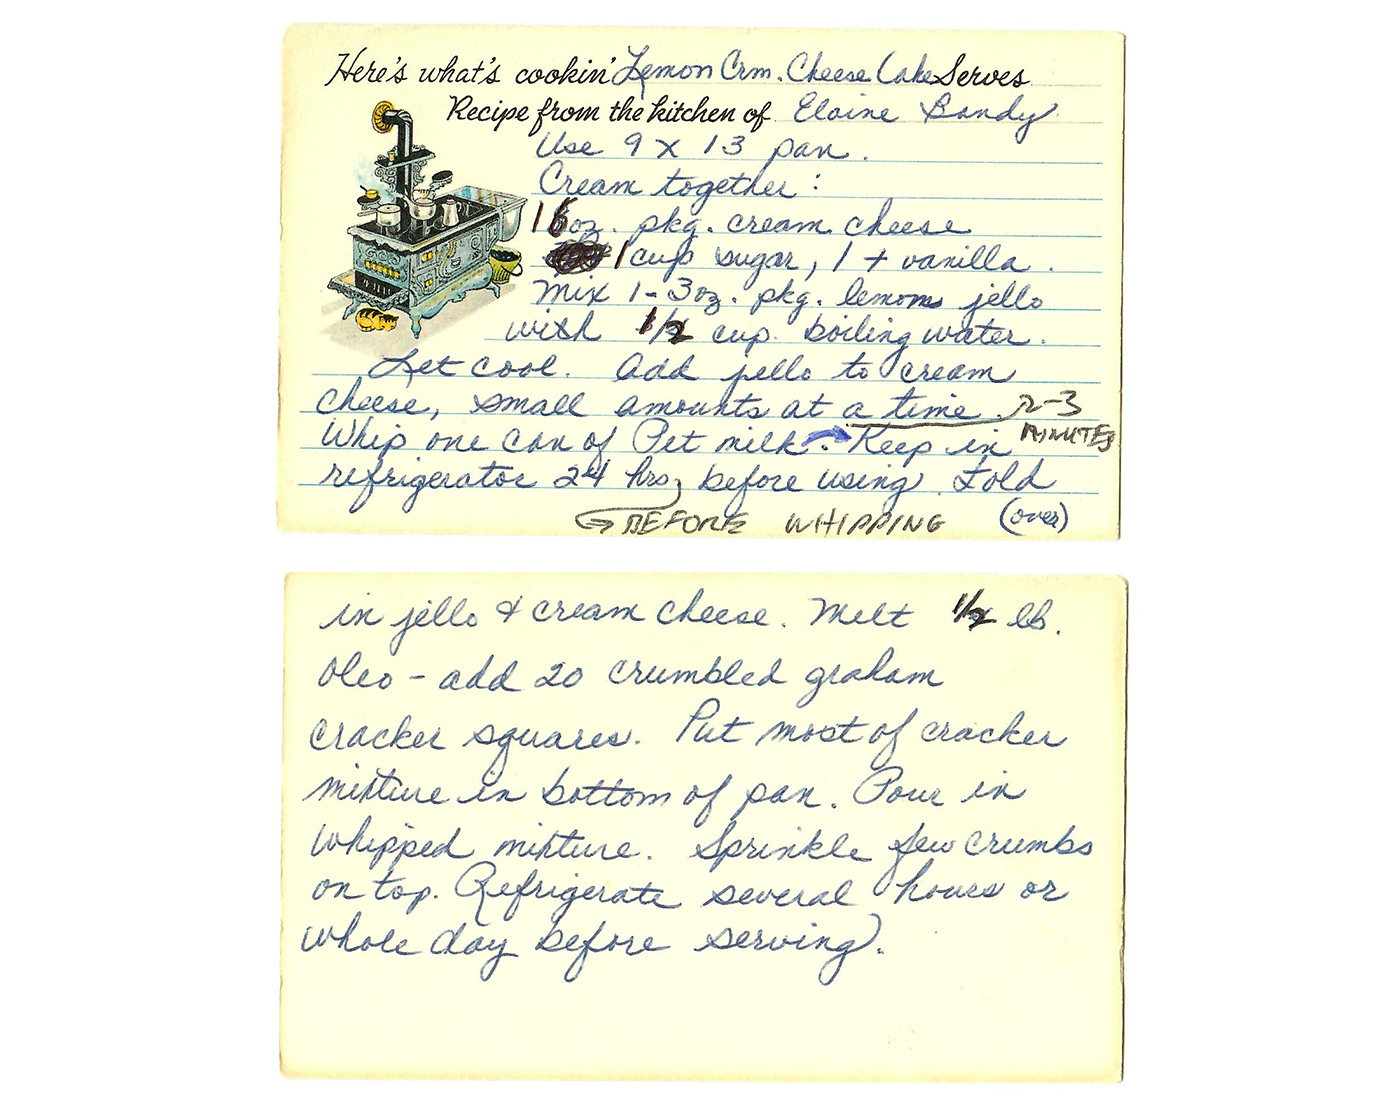 Here's what's cookin' Lemon Crm. Cheese Cake Serves
Recipe from the kitchen of Elaine Bandy
Use 9 x 13 pan.
Cream together:
1 6oz. pkg. cream cheese
1 cup sugar, 1 t vanilla.
Mix 1-3oz. pkg. lemon jello
with 1/2 cup boiling water.
Let cool. Add jello to cream
cheese, small amounts at a time. 2-3
MINUTES
Whip one can of Pet milk. Keep in
refrigerator 24 hrs, before using. Fold
BEFORE WHIPPING (over)
in jello & cream cheese. Melt 1/2 lb.
oleo - add 20 crumbled graham
cracker squares. Put most of cracker
mixture in bottom of pan. Pour in
whipped mixture. Sprinkle few crumbs
on top. Refrigerate several hours or
whole day before serving.